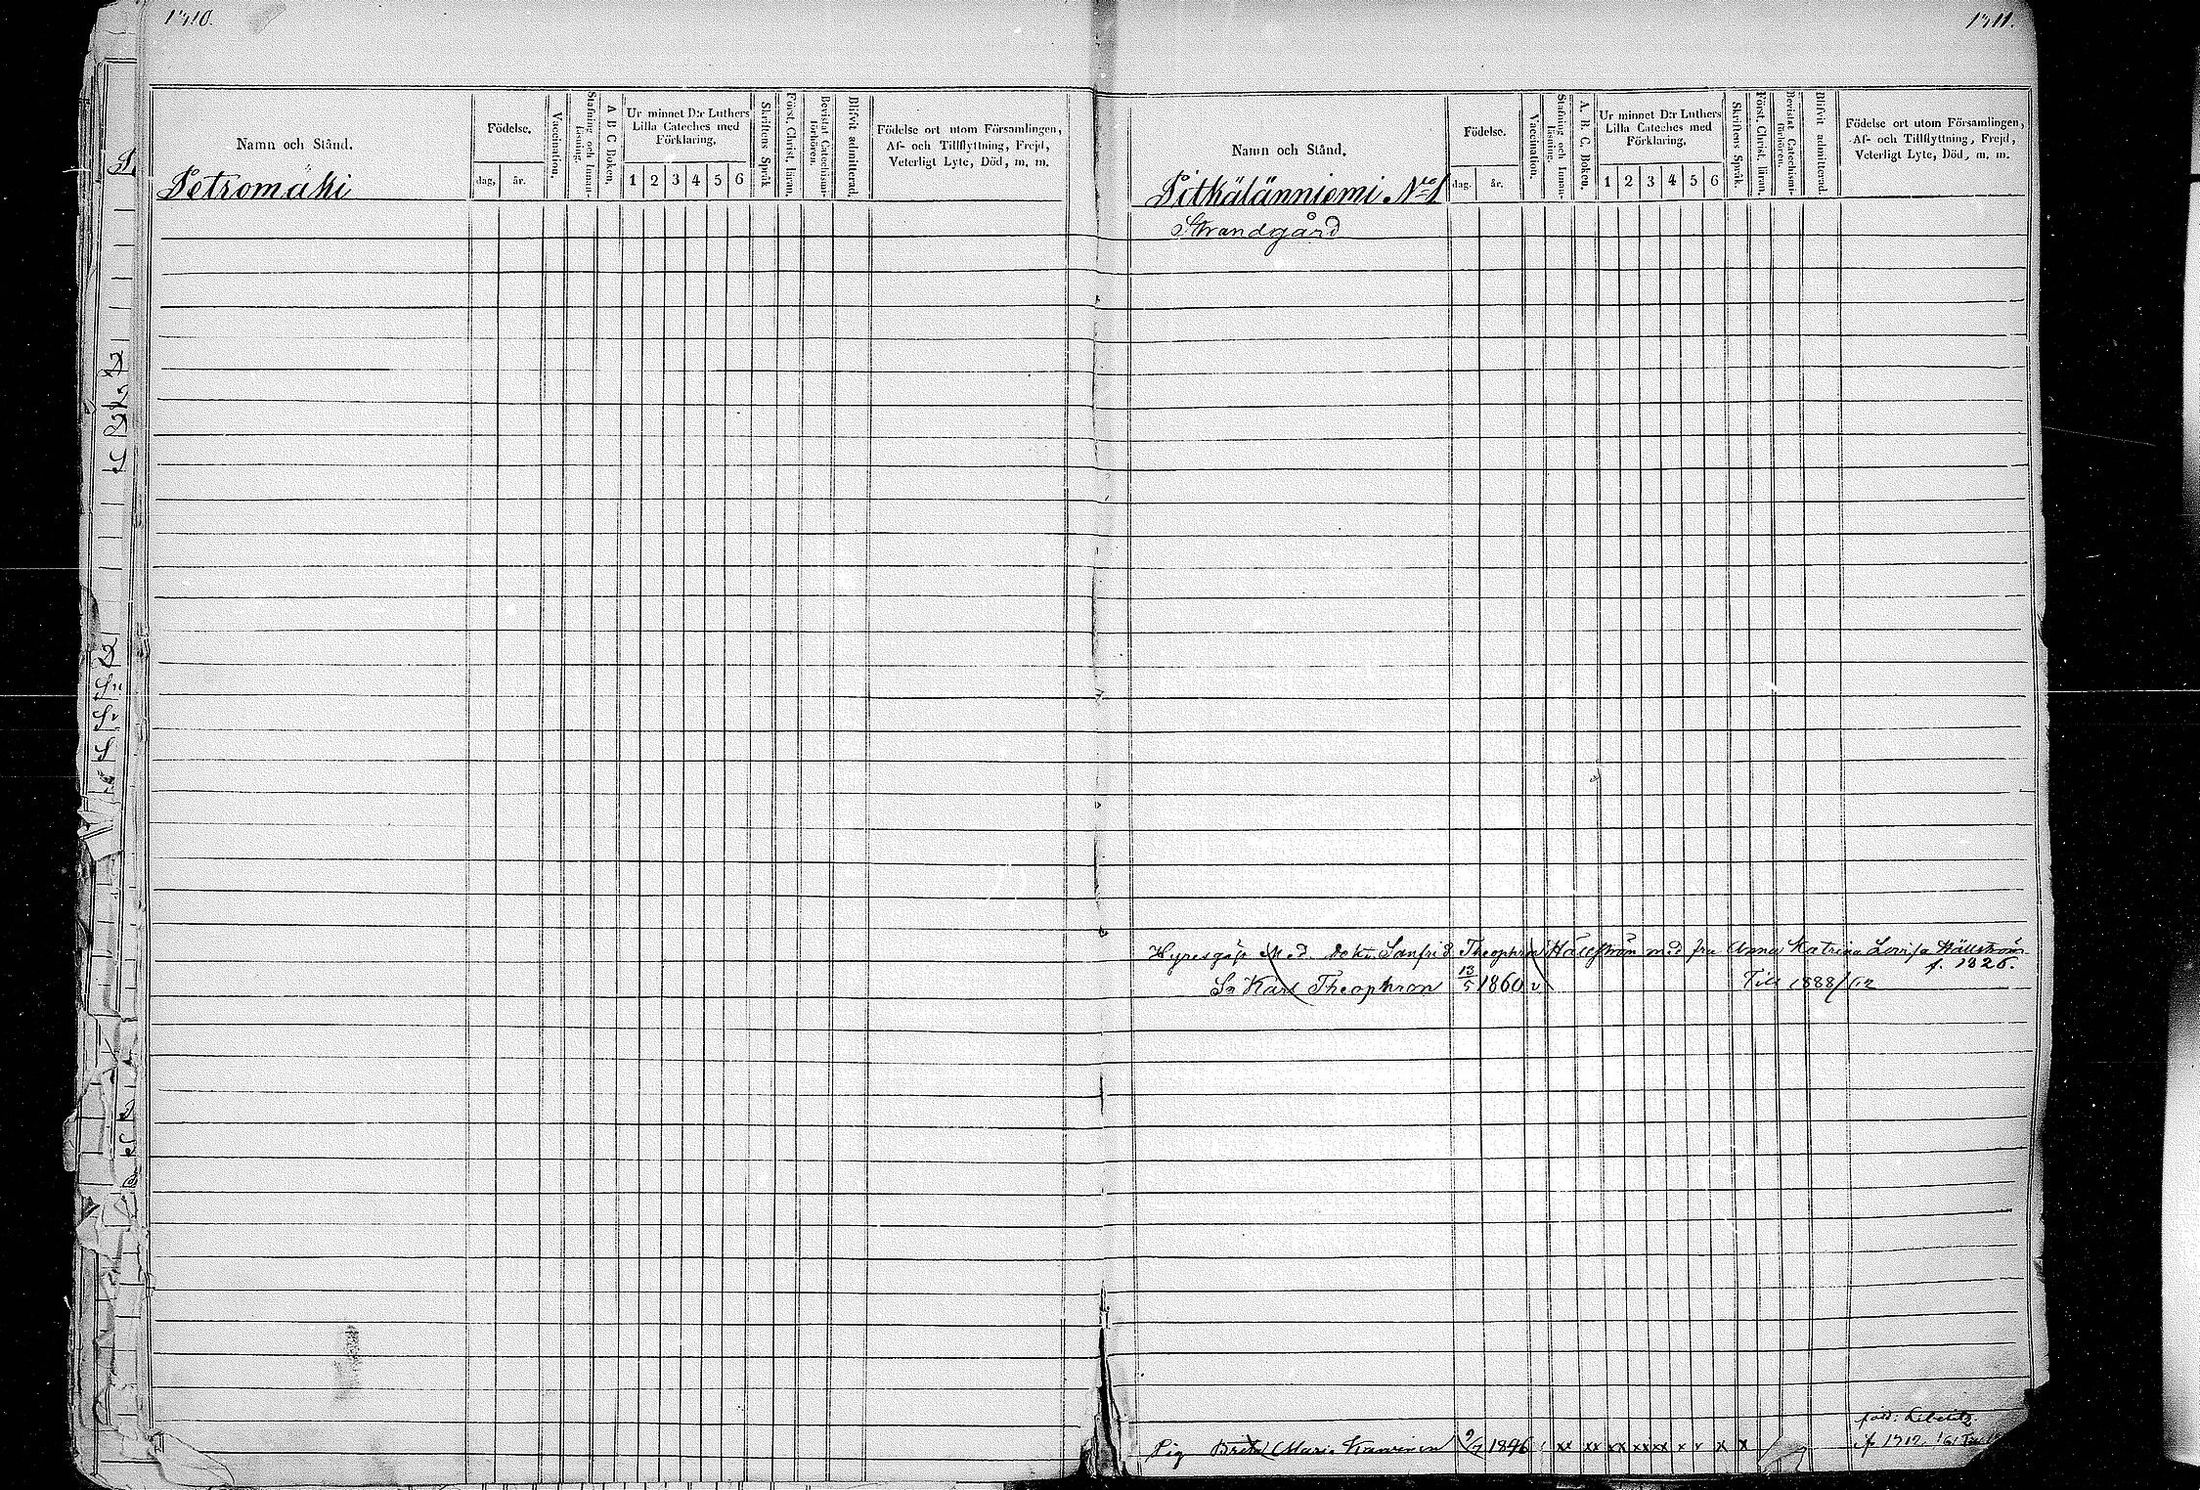 1310.
Namn och Stånd.
Födelse.
dag, år.
Vaccination.
Stafning och Innanläsning.
A B C Boken.
Ur minnet D:r Luthers Lilla Cateches med Förklaring.
1 2 3 4 5 6
Skriftens Språk
Först. Christ. läran.
Bevistat Catechismiförhören.
Blifvit admitterad.
Födelse ort utom Församlingen,
Af- och Tillflyttning, Frejd,
Veterligt Lyte, Död, m. m.
Petromäki
1311.
Namn och Stånd.
Födelse.
dag. år.
Vaccination.
Stafning och Innanläsning.
A. B. C. Boken.
Ur minnet D:r Luthers Lilla Cateches med Förklaring.
1 2 3 4 5 6
Skriftens Språk.
Först. Christ. läran.
Bevistat Catechismiförhören.
Blifvit admitterad.
Födelse ort utom Församlingen,
Af- och Tillflyttning, Frejd,
Veterligt Lyte, Död, m. m.
Pitkälänniemi No 1
Strandgård
Med. Sanfrid Theophron Hällström med fru Anna Katrina Lovisa Hällström
f. 1826.
Sn Karl Theophron 13/5 1860 v Till 1888/
född: Libelitz
Pig Brita Maria 9/7 1846 xx xx xx xx xx x x x x